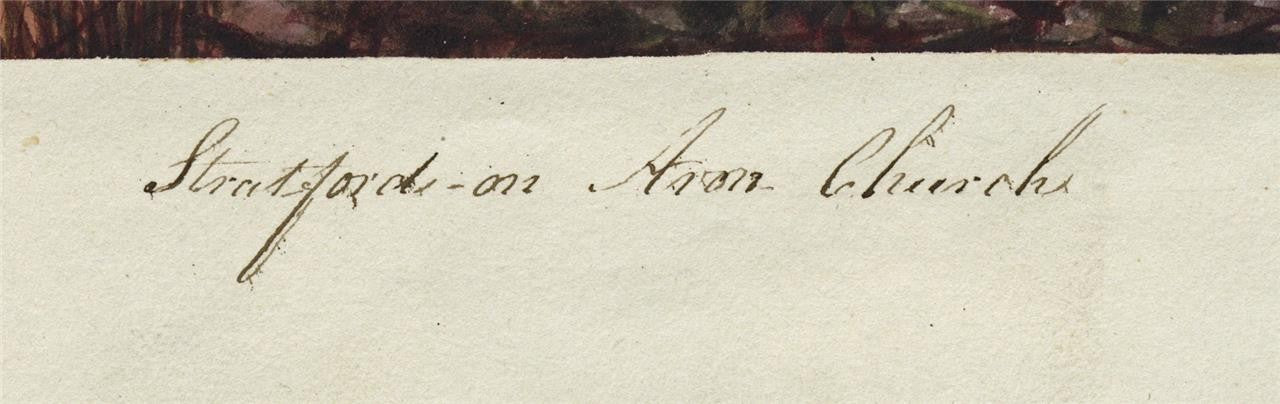 Stratford-on Avon Church